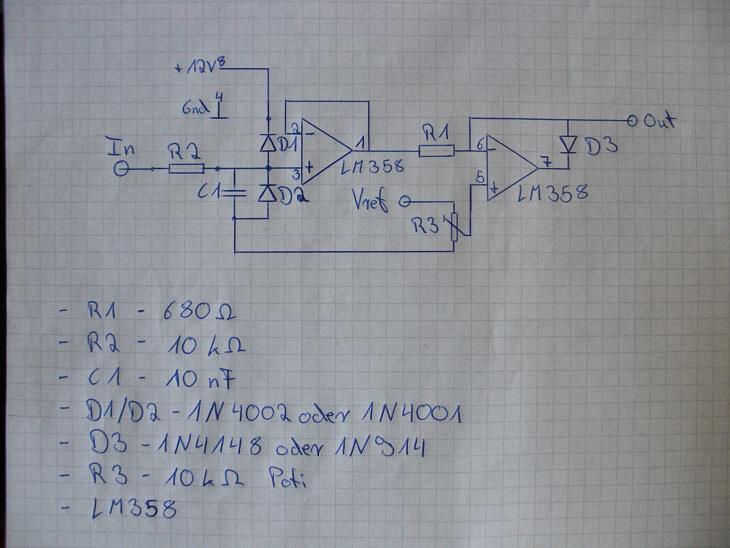 +12V 8
Gnd 4
In
R2
C1
D1
D2
2
-
3
+
1
LM358
R1
Vref
R3
6
-
5
+
7
LM358
D3
Out
- R1 - 680Ω
- R2 - 10 kΩ
- C1 - 10 nF
- D1/D2 - 1N4002 oder 1N4001
- D3 - 1N4148 oder 1N914
- R3 - 10kΩ Poti
- LM358